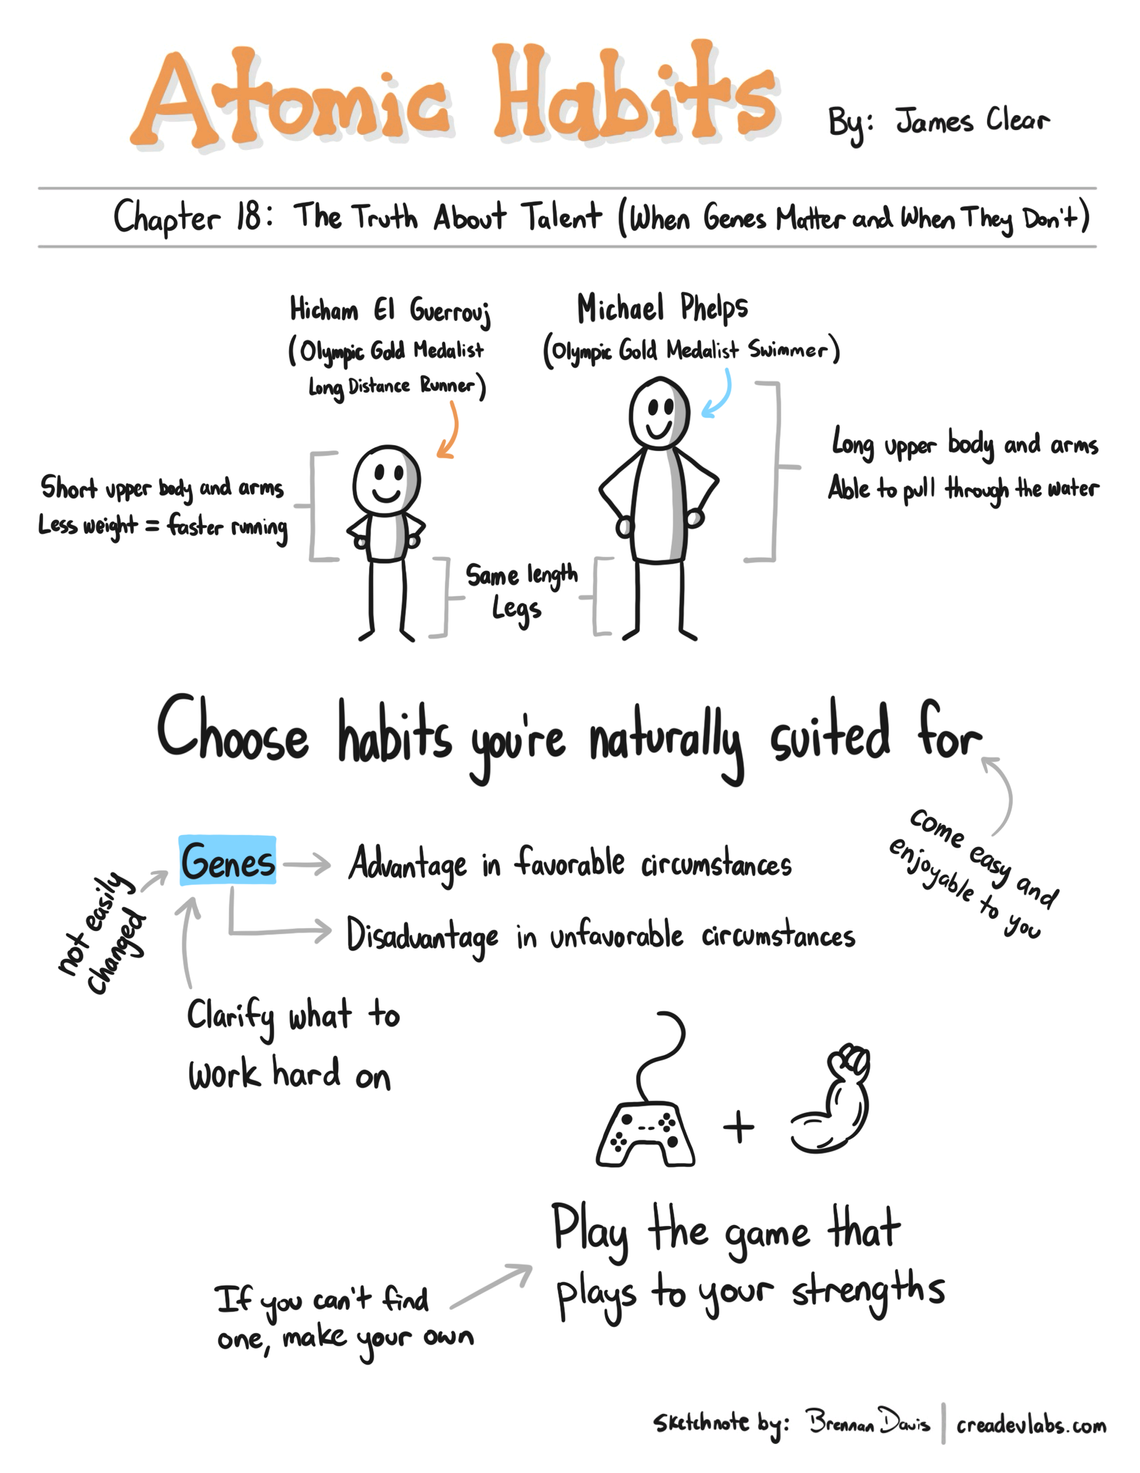 Atomic Habits
By: James Clear
Chapter 18: The Truth About Talent (When Genes Matter and When They Don't)
Hicham El Guerrouj
(Olympic Gold Medalist
Long Distance Runner)
Michael Phelps
(Olympic Gold Medalist Swimmer)
Short upper body and arms
Less weight = faster running
Long upper body and arms
Able to pull through the water
Same length
Legs
Choose habits you're naturally suited for
come easy and
enjoyable to you
Genes
Advantage in favorable circumstances
Disadvantage in unfavorable circumstances
not easily
changed
Clarify what to
work hard on
+
Play the game that
plays to your strengths
If you can't find
one, make your own
Sketchnote by: Brennan Davis | creadevlabs.com